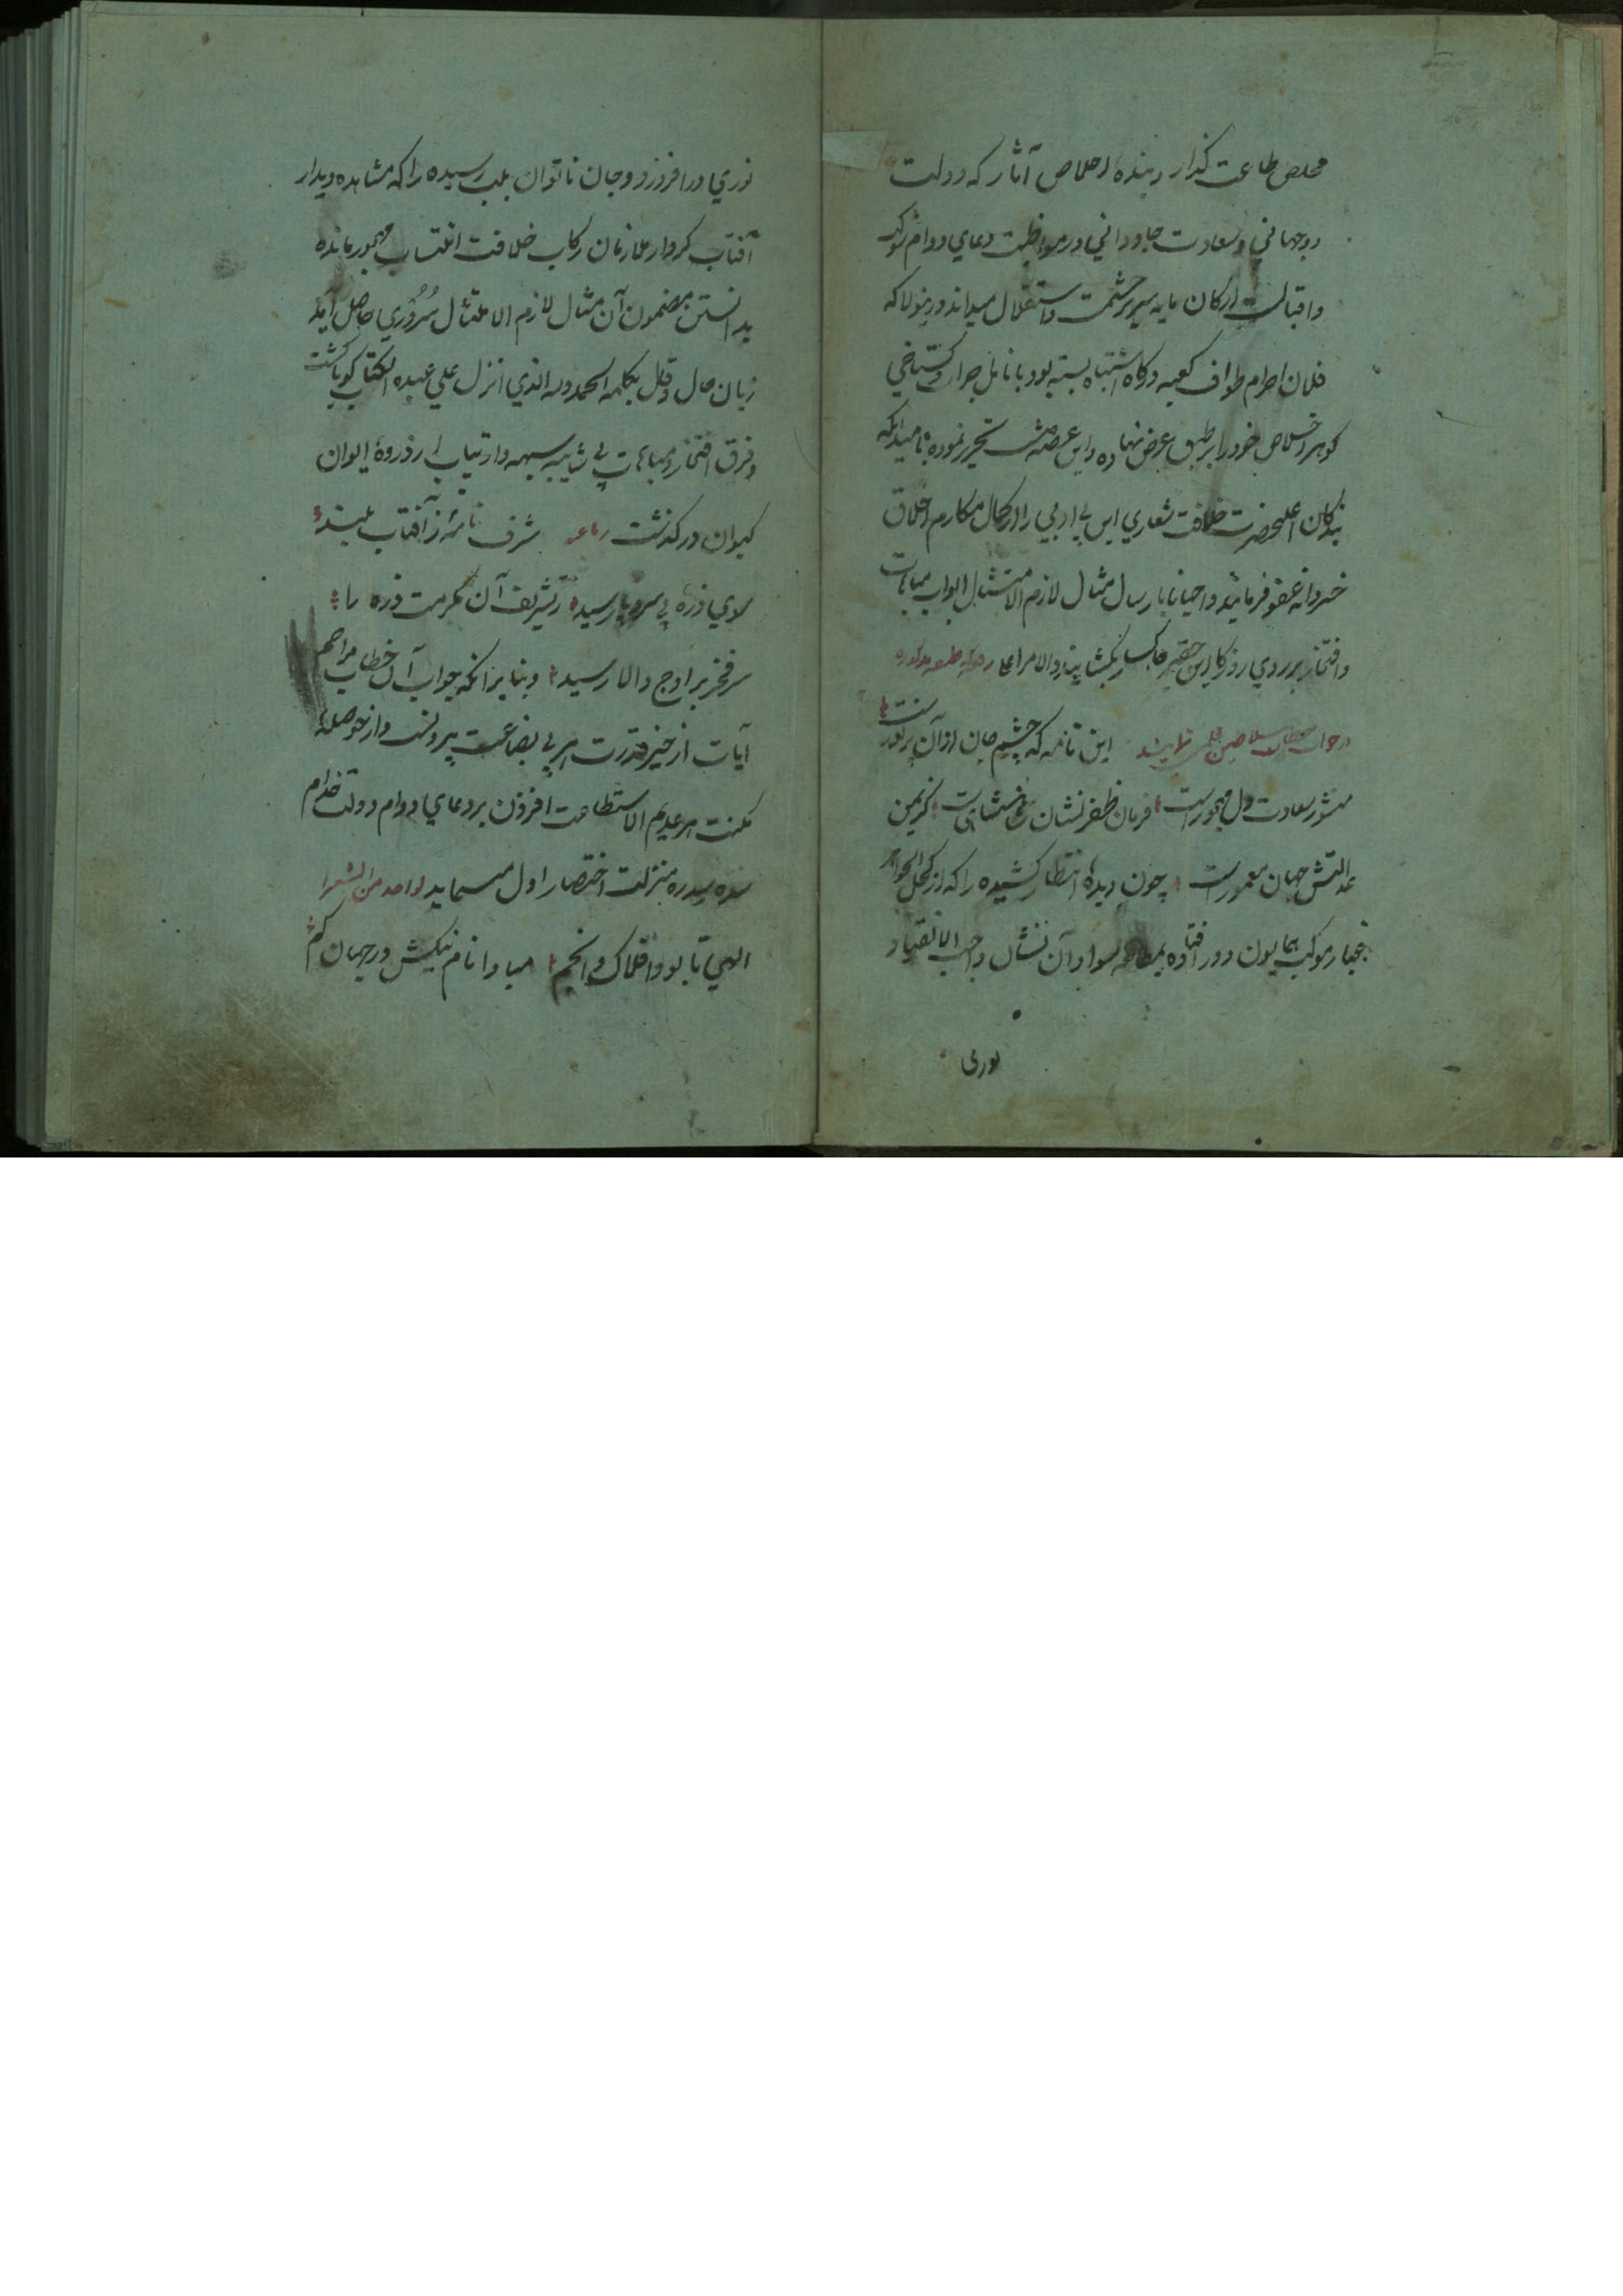 مخلص طاعت گذار و بنده اخلاص آثار که دولت
دوجهانی و سعادت جاودانی در مواظبت دعای دوام شوکت
واقبالست ارکان پایه سریر حشمت و استقلال میداند درینولا که
فلان احرام طواف کعبه درگاه اشتباه بسته بود بانامل جرات و گستاخی
گوهر اخلاص خود را بر طبق عرض نهاده و این عرضه داشت تحریر نموده نامید آنکه
بندگان اعلیحضرت خلافت شعاری این بی ادبی را از کمال مکارم اخلاق
خسروانه عفو فرمایند و احیانا بارسال مثال لازم الامتثال ابواب مباهات
وافتخار بر روی روزگار این حقیر خاکسار بکشایند والامر اعلی
در جواب سلاطین نمایند این نامه که چشم جان از آن پر نورست
منشور سعادت دل مهجورست فرمان ظفر نشان شاهنشاهیست کز یمن
عدالتش جهان معمورست چون دیده انتظار کشیده را که از کحل الجواهر
غبار موکب همایون دور افتاده بمطالعه سواد آن نشان واجب الانقیاد
نوری
نوری در افزود و جان ناتوان بلب رسیده را که مشاهده دیدار
آفتاب کردار ملازمان رکاب خلافت انتساب مهجور مانده
بدانستن مضمون آن مثال لازم الامتثال سروری حاصل آمد
زبان حال و قال بکلمه الحمد لله الذی انزل علی عبده الکتاب گویا گشت
و فرق افتخار و مباهات بی شایبه شبهه و ارتیاب از ذروۀ ایوان
کیوان درگذشت رباعیه شرف نامۀ ز آفتاب بلند
سوی ذره بی سر و پا رسید ز تشریف آن مکرمت ذره را
سر فخر بر اوج والا رسید و بنا بر آنکه جواب آن خطاب مراحم
آیات از حیز قدرت هر بی بضاعت بیرونست و از حوصله
مکنت هر عدیم الاستطاعت افزون بر دعای دوام دولت خدام
سده سدره منزلت اختصار اولی مینماید لواحد من الشعرا
الهی تا بود افلاک و انجم مبادا نام نیکش در جهان گم